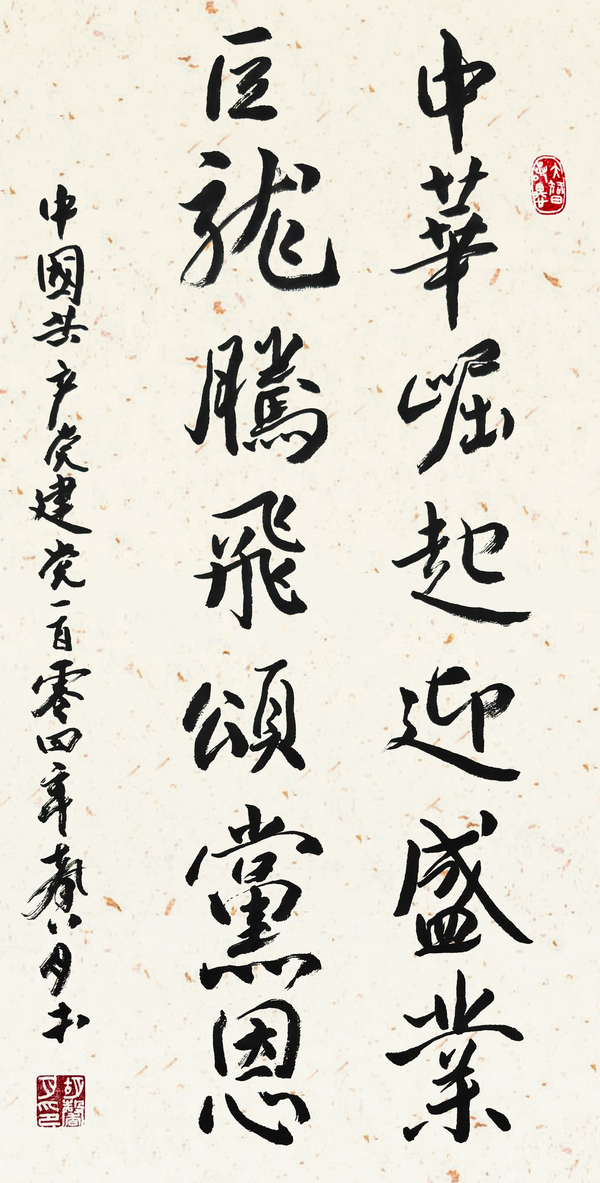 大智若愚
中華崛起迎盛業
巨龍騰飛頌黨恩
中國共产党建党一百零四年 月书